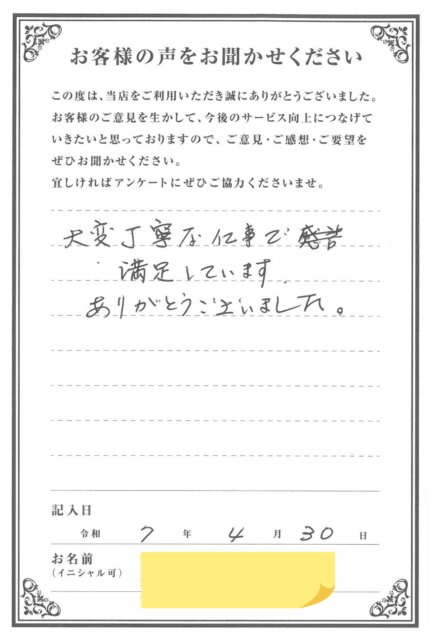 お客様の声をお聞かせください
この度は、当店をご利用いただき誠にありがとうございました。
お客様のご意見を生かして、今後のサービス向上につなげて
いきたいと思っておりますので、ご意見・ご感想・ご要望を
ぜひお聞かせください。
宜しければアンケートにぜひご協力くださいませ。
大変丁寧な仕事で
満足しています.
ありがとうございました。
記入日
令和 7 年 4 月 30 日
お名前
(イニシャル可)